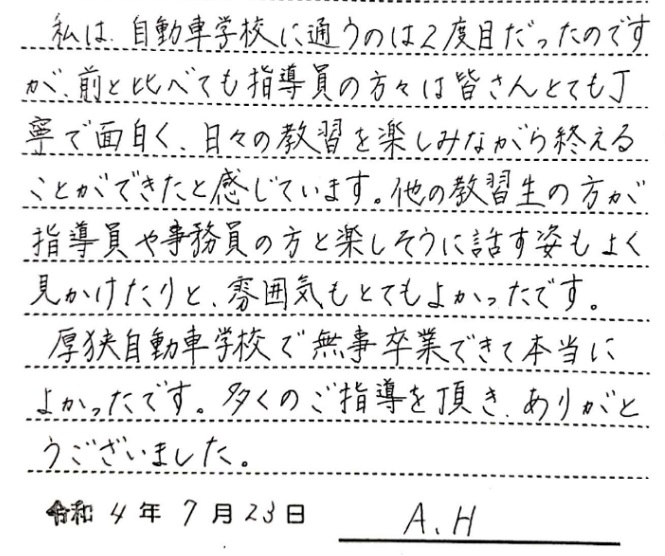 私は、自動車学校に通うのは2度目だったのです
が、前と比べても指導員の方々は皆さんとても丁
寧で面白く、日々の教習を楽しみながら終える
ことができたと感じています。他の教習生の方が
指導員や事務員の方と楽しそうに話す姿もよく
見かけたりと、雰囲気もとてもよかったです。
厚狭自動車学校で無事卒業できて本当に
よかったです。多くのご指導を頂き、ありがと
うございました。
令和4年7月23日 A.H